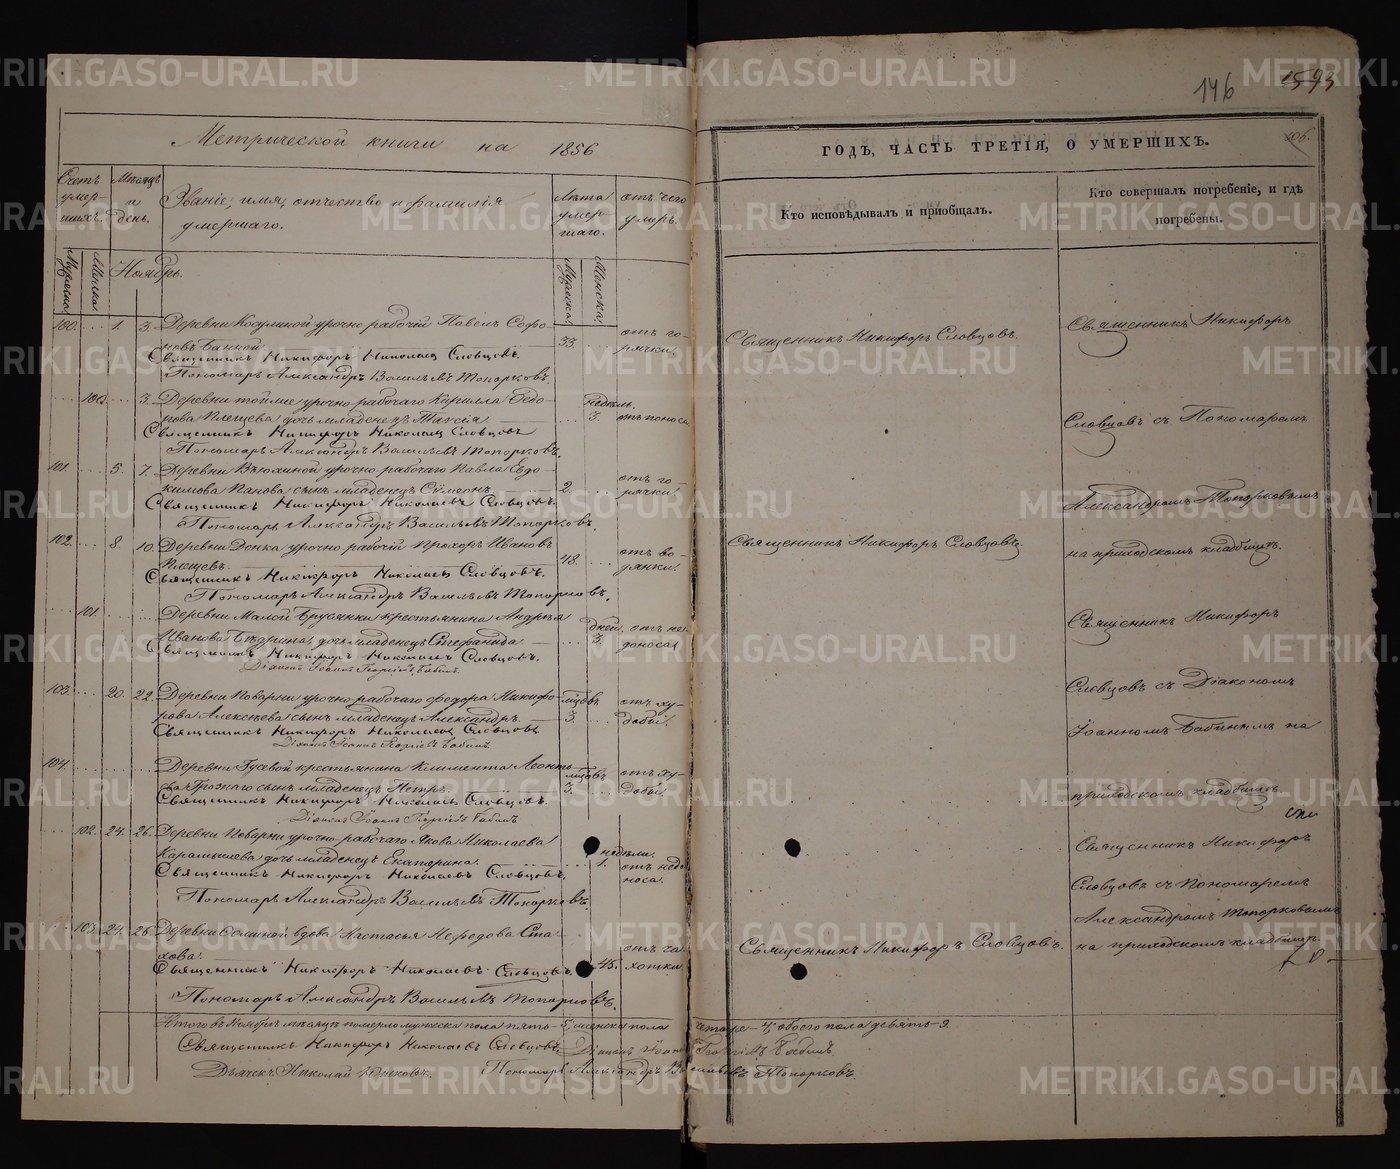 146
1593
106.
Метрической книги на 1856
ГОДЪ, ЧАСТЬ ТРЕТІЯ, О УМЕРШИХЪ.
Счетъ умер-шихъ.
Мѣсяцъ и день.
Званіе, имя, отчество и фамилія
умершаго.
Лѣта умер-шаго.
отъ чего умеръ.
Кто исповѣдывалъ и пріобщалъ.
Кто совершалъ погребеніе, и гдѣ
погребены.
Мужеска
Женска
Ноябрь.
Мужеска
Женска
100. 1. 3. Деревни Косулиной урочно рабочій Павелъ Софо-
новъ 33 отъ го-
рячки.
Священникъ Никифоръ Николаевъ Словцовъ.
Пономарь Александръ Васильевъ Топорковъ.
Священникъ Никифоръ Словцовъ.
Священникъ Никифоръ
100. 3. Деревни урочно рабочаго Кирилла Федо- недѣль
рова Плещева дочь младенецъ Таисія 3. отъ поноса
Священникъ Никифоръ Николаевъ Словцовъ
Пономарь Александръ Васильевъ Топорковъ.
Словцовъ съ Пономаремъ
101. 5. 7. Деревни урочно рабочаго Павла Евдо- отъ го-
кимова Панова сынъ младенецъ Симеонъ 2. рячки
Священникъ Никифоръ Николаевъ Словцовъ.
Пономарь Александръ Васильевъ Топорковъ.
Александромъ Топорковымъ
102. 8. 10. Деревни урочно рабочій Прохоръ Ивановъ
Плещевъ. 48. отъ во-
дянки.
Священникъ Никифоръ Николаевъ Словцовъ.
Пономарь Александръ Васильевъ Топорковъ.
Священникъ Никифоръ Словцовъ.
на приходскомъ кладбищѣ.
101. Деревни Малой Брусянки крестьянина Андрея
Иванова дочь младенецъ Стефанида дней 3. отъ не-
доноса
Священникъ Никифоръ Николаевъ Словцовъ.
Діаконъ Іоаннъ Георгіевъ Бабинъ.
Священникъ Никифоръ
103. 20. 22. Деревни Поварни урочно рабочаго Федора Никифо- мцовъ отъ ху-
рова Алексеева сынъ младенецъ Александръ 3. добы.
Священникъ Никифоръ Николаевъ Словцовъ
Діаконъ Іоаннъ Георгіевъ Бабинъ.
Словцовъ съ Діакономъ
Іоанномъ Бабинымъ на
104. Деревни Гусевой крестьянина Климента Леонть- мцовъ отъ ху-
ева Грознаго сынъ младенецъ Петръ. 3. добы.
Священникъ Никифоръ Николаевъ Словцовъ.
Діаконъ Іоаннъ Георгіевъ Бабинъ
приходскомъ кладбищѣ
102. 24. 26. Деревни Поварни урочно рабочаго Якова Николаева
Карамышева дочь младенецъ Екатерина. недѣли. 1. отъ недо-
носа.
Священникъ Никифоръ Николаевъ Словцовъ.
Пономарь Александръ Васильевъ Топорковъ.
Священникъ Никифоръ
Словцовъ съ Пономаремъ
Александромъ Топорковымъ
103. 24. 26. Деревни вдова Настасья Нефедова Ста-
хова. 45. отъ ча-
хотки
Священникъ Никифоръ Николаевъ Словцовъ.
Пономарь Александръ Васильевъ Топорковъ.
Священникъ Никифоръ Словцовъ.
на приходскомъ кладбищѣ.
Итого въ Ноябрѣ мѣсяцѣ померло мужеска пола пять – 5, женска пола четыре – 4, обоего пола девять – 9.
Священникъ Никифоръ Николаевъ Словцовъ. Діаконъ Іоаннъ Георгіевъ Бабинъ.
Дьячекъ Николай Пономарь Александръ Васильевъ Топорковъ.
METRIKI.GASO-URAL.RU